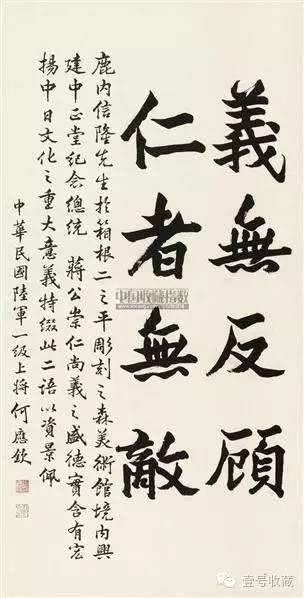 義無反顧
仁者無敵
鹿內信隆先生於箱根二之平彫刻之森美術館境內興
建中正堂紀念總統 蔣公崇仁尚義之盛德實含有宏
揚中日文化之重大意義特綴此二語以資景佩
中華民國陸軍一級上將何應欽
中国收藏指数
壹号收藏